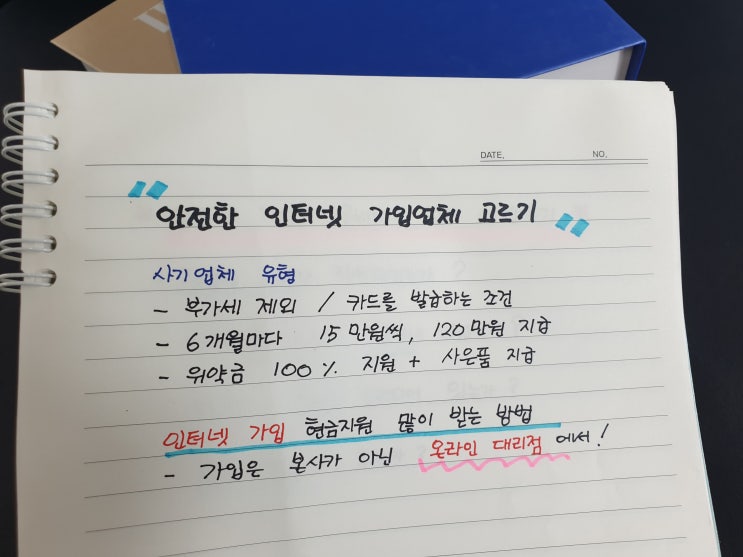 DATE. NO.
" 안전한 인터넷 가입업체 고르기 "
사기업체 유형
- 부가세 제외 / 카드를 발급하는 조건
- 6개월마다 15만원씩, 120만원 지급
- 위약금 100% 지원 + 사은품 지급
인터넷 가입 현금지원 많이 받는 방법
- 가입은 본사가 아닌 온라인 대리점에서!